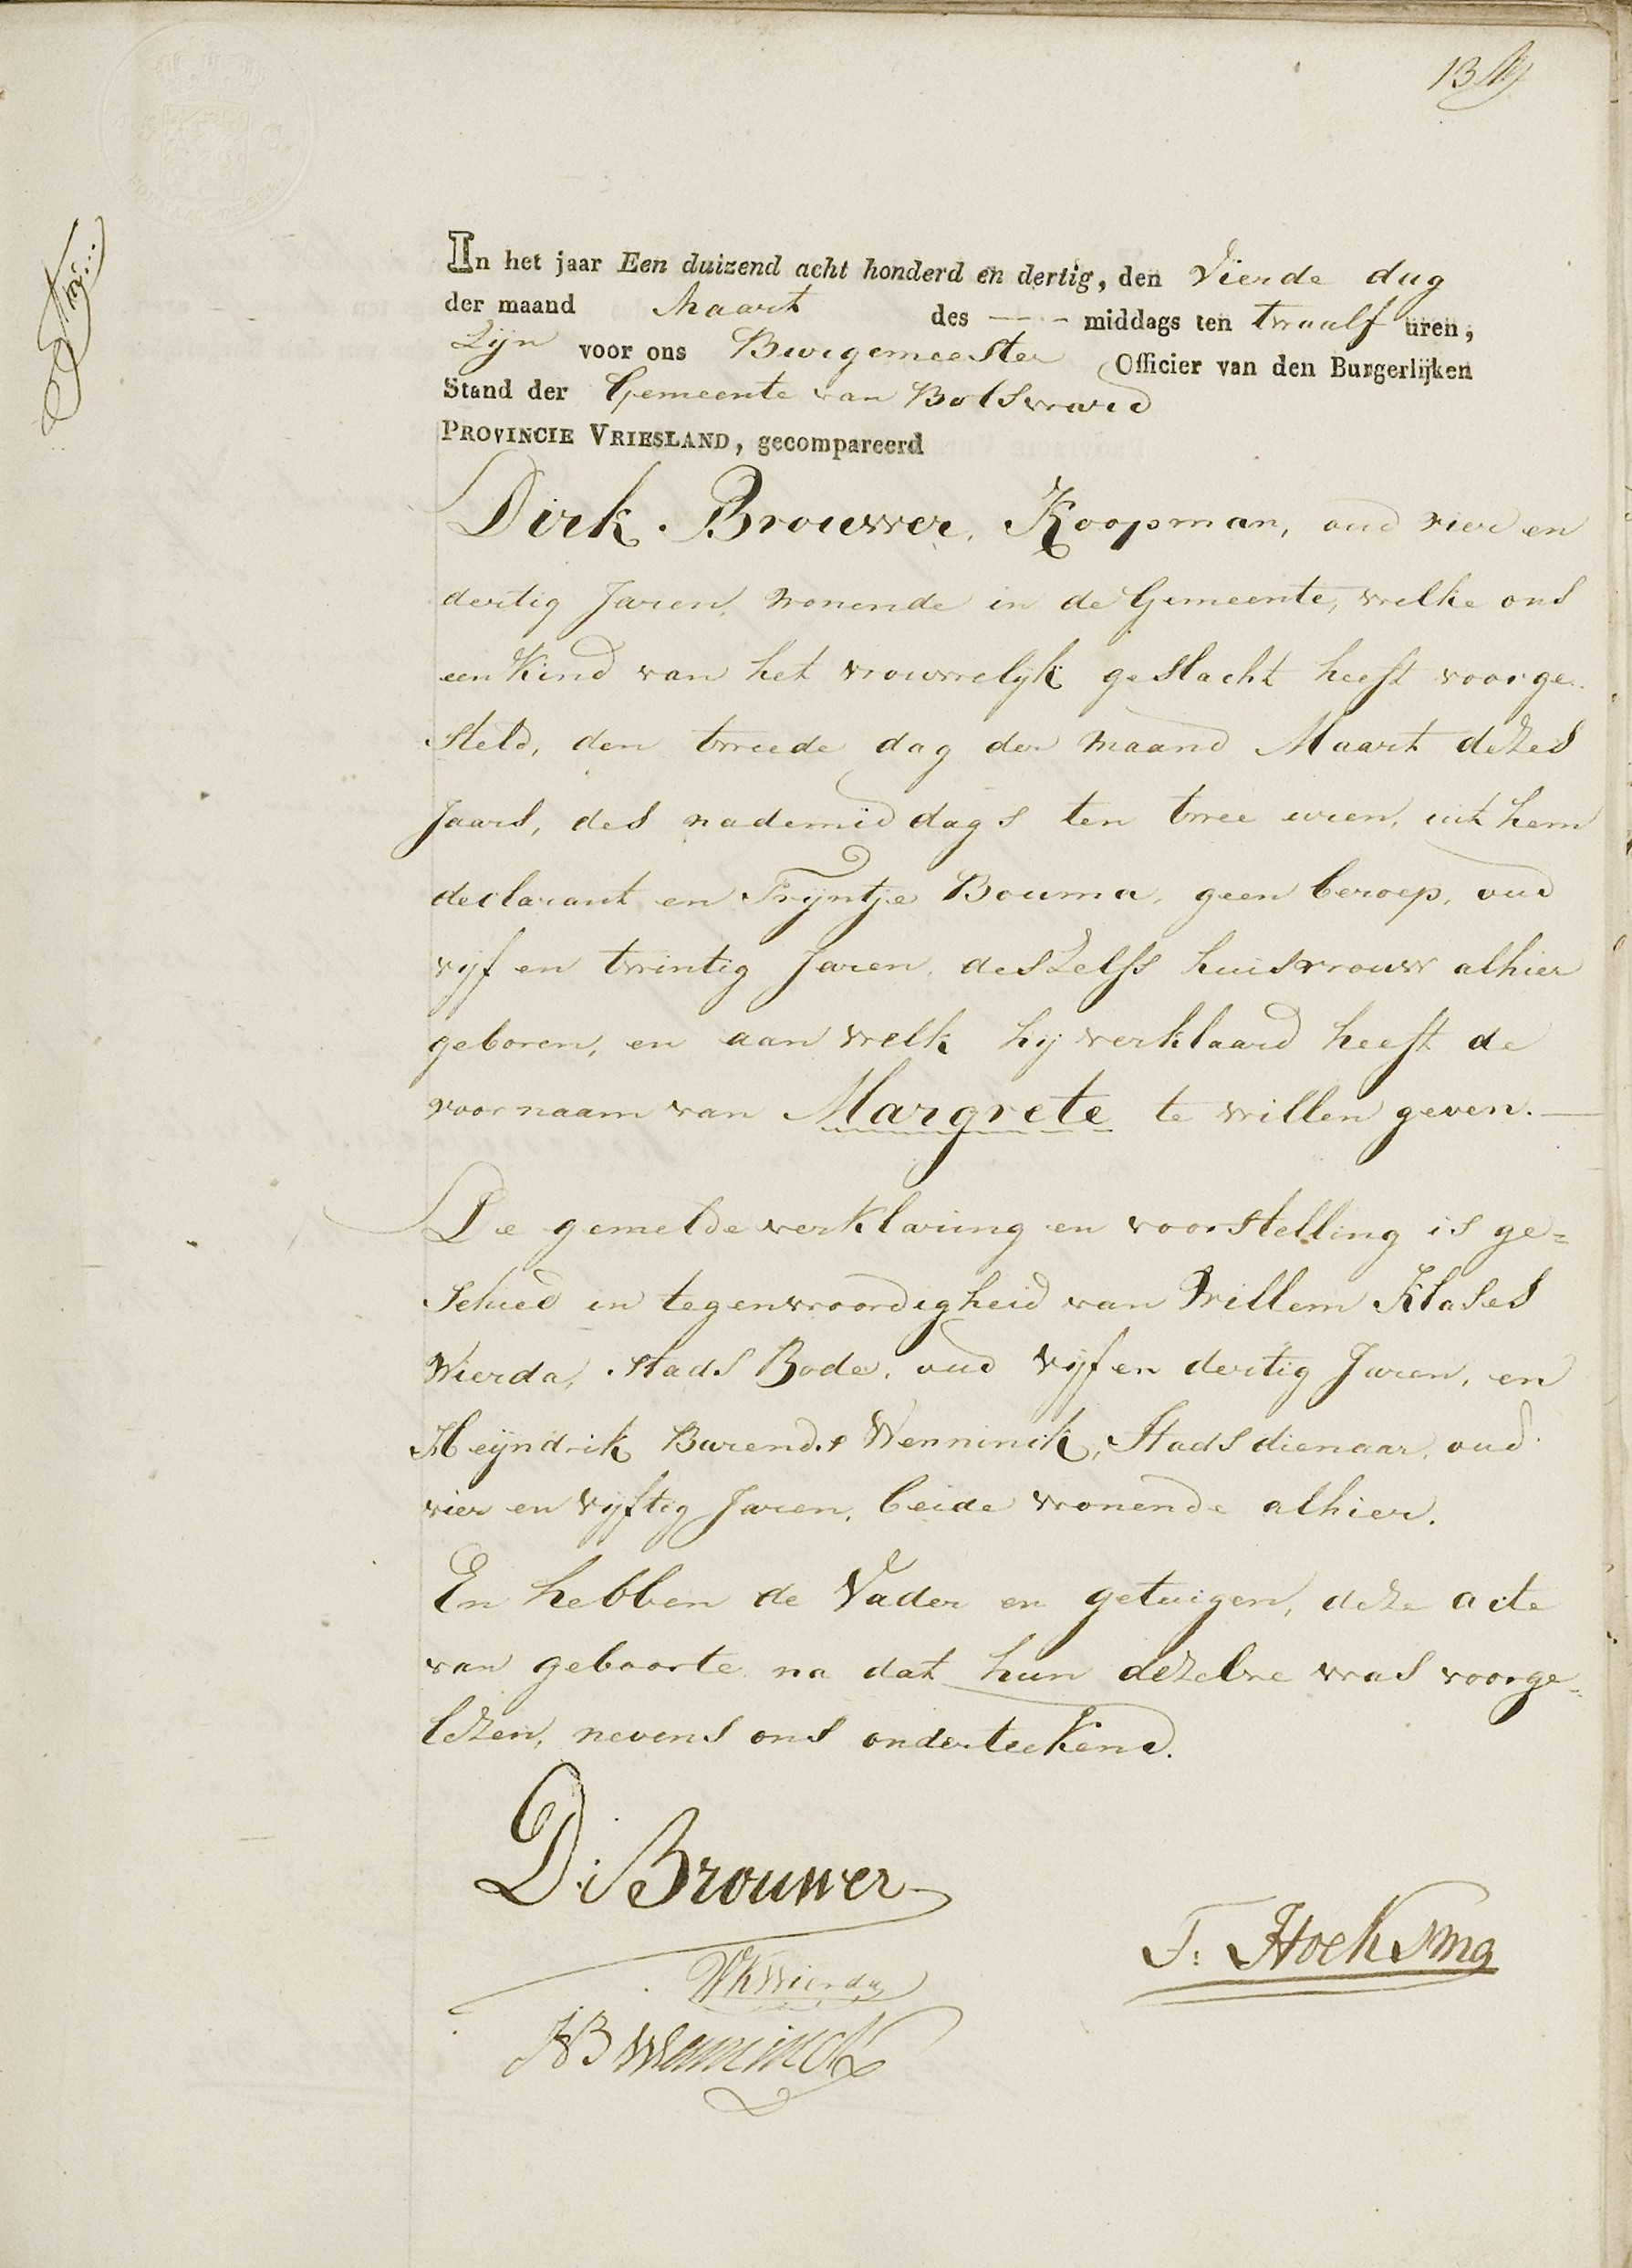 In het jaar Een duizend acht honderd en dertig, den Vierde dag
der maand Maart des — - - middags ten twaalf uren,
Zijn voor ons Burgemeester Officier van den Burgerlijken
Stand der Gemeente van Bolsward
PROVINCIE VRIESLAND, gecompareerd
Dirk Brouwer, Koopman, oud vier en
dertig Jaren, wonende in de Gemeente, welke ons
een Kind van het vrouwelijk geslacht heeft voorge-
steld, den tweede dag der maand Maart dezes
Jaars, des nademiddags ten twee uren, uit hem
declarant en Trijntje Bouma, geen beroep, oud
vijf en twintig Jaren, deszelfs huisvrouw alhier
geboren, en aan welk hij verklaard heeft de
voornaam van Margrete te willen geven. —
De gemelde verklaring en voorstelling is ge=
schied in tegenwoordigheid van Willem Klases
Wierda, Stads Bode, oud vijf en dertig Jaren, en
Heijndrik Barends Wenninck, Stads dienaar, oud
vier en vijftig Jaren, beide wonende alhier.
En hebben de Vader en getuigen, deze acte
van geboorte na dat hun dezelve was voorge-
lezen, nevens ons onderteekend.
D: Brouwer
F: Hoeksma
WKWierda
HB Wenninck